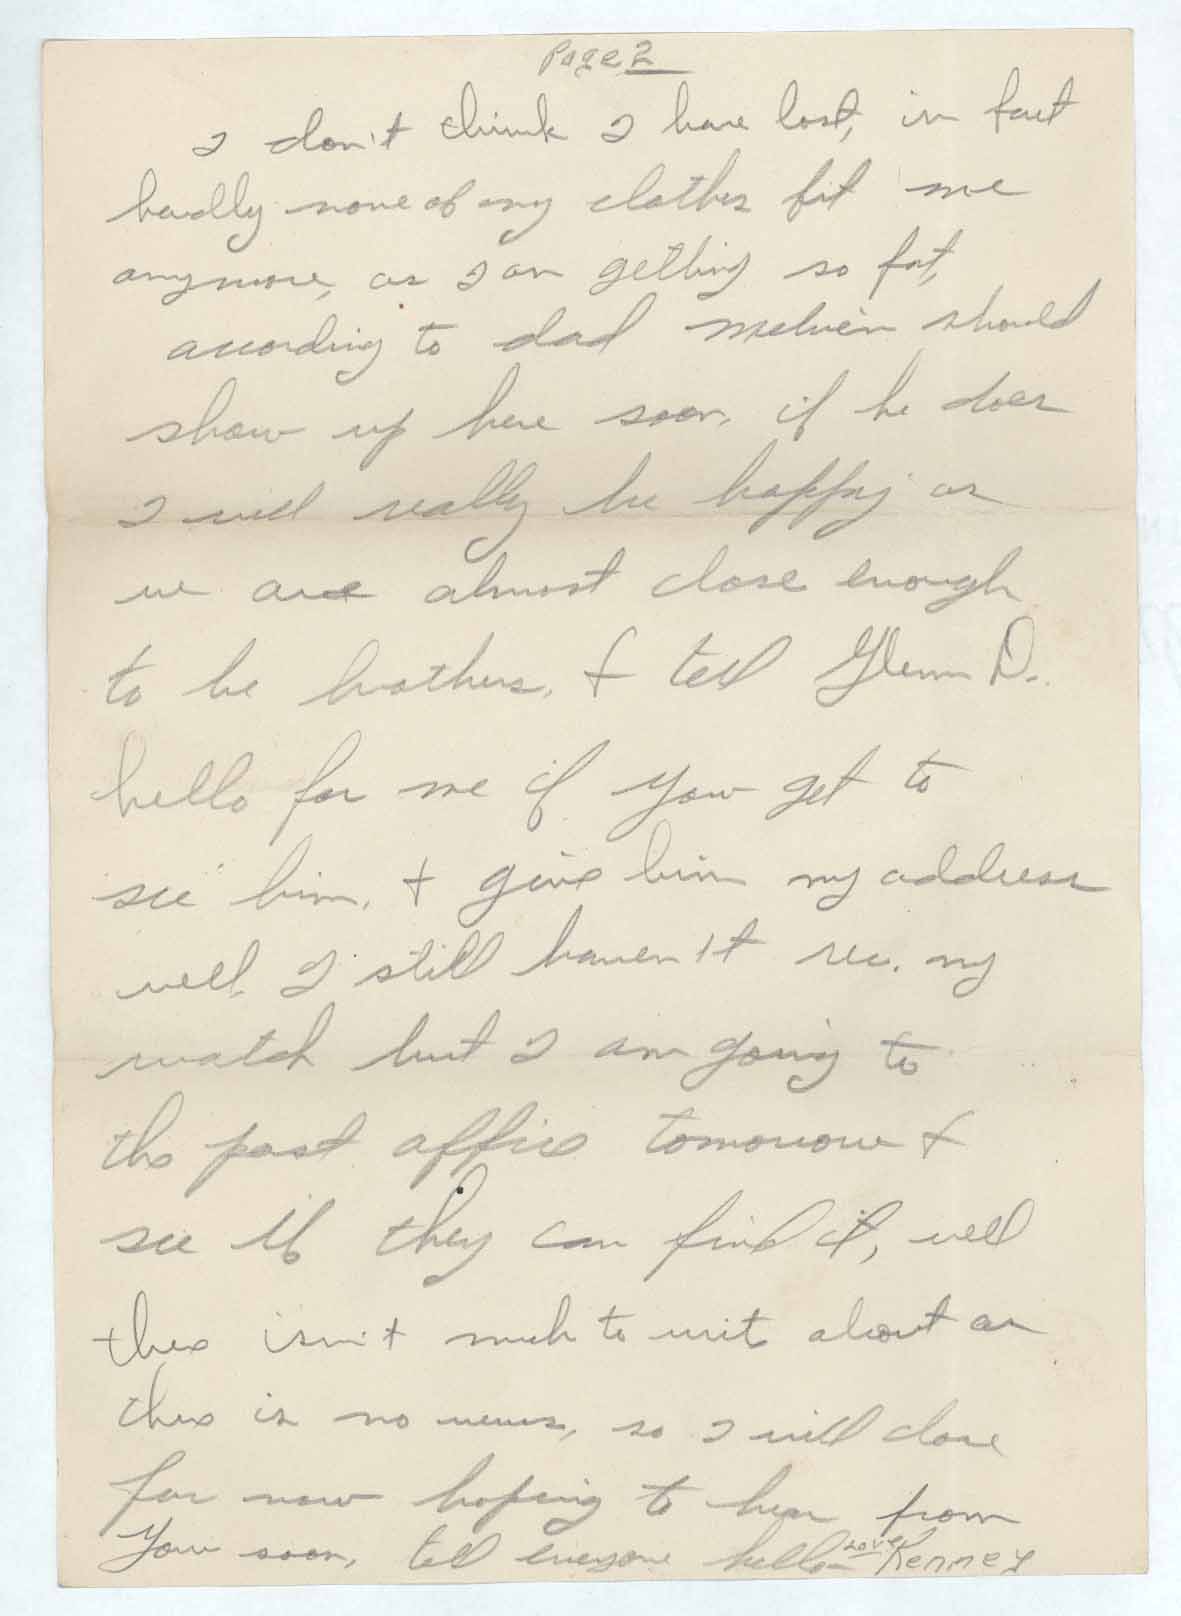 Page 2
I don't think I have lost, in fact
hardly none of my clothes fit me
anymore, as I am getting so fat,
according to dad Melvin should
show up here soon, if he does
I will really be happy as
we are almost close enough
to be brothers, & tell Glenn D.
hello for me if you get to
see him, & give him my address
well, I still haven't rec. my
watch but I am going to
the post office tomorrow &
see if they can find it, well
there isn't much to write about as
there is no news, so I will close
for now hoping to hear from
You soon, tell everyone hello Love Kenney